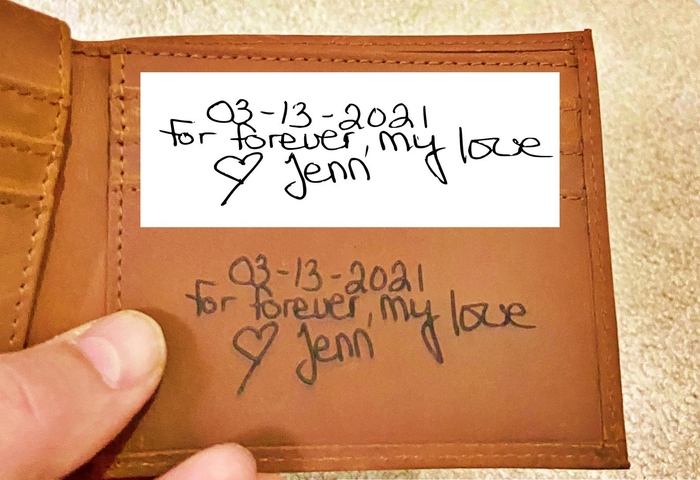 03-13-2021
for forever, my love
♡ Jenn
03-13-2021
for forever, my love
♡ Jenn